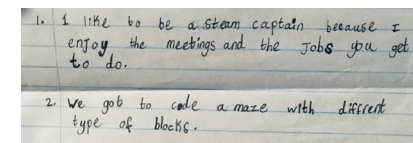 1. I like to be a steam captain because I
enjoy the meetings and the Jobs you get
to do.
2. We got to code a maze with diffrent
type of blocks.